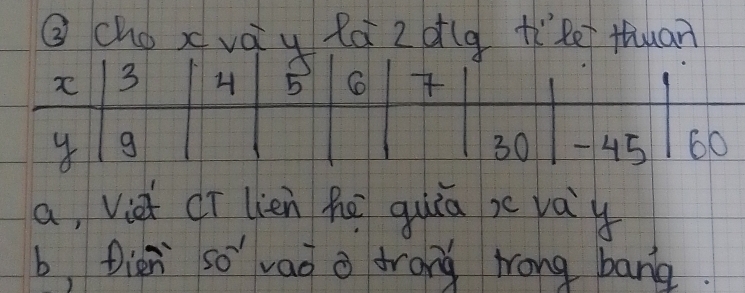 ③ Cho x và y là 2 đ/lg tỉ lệ thuận
x | 3 | 4 | 5 | 6 | 7 | | |
y | 9 | | | | | 30 | -45 | 60
a, Viết CT liên hệ giữa x và y
b, Điền số vào ô trống trong bảng.